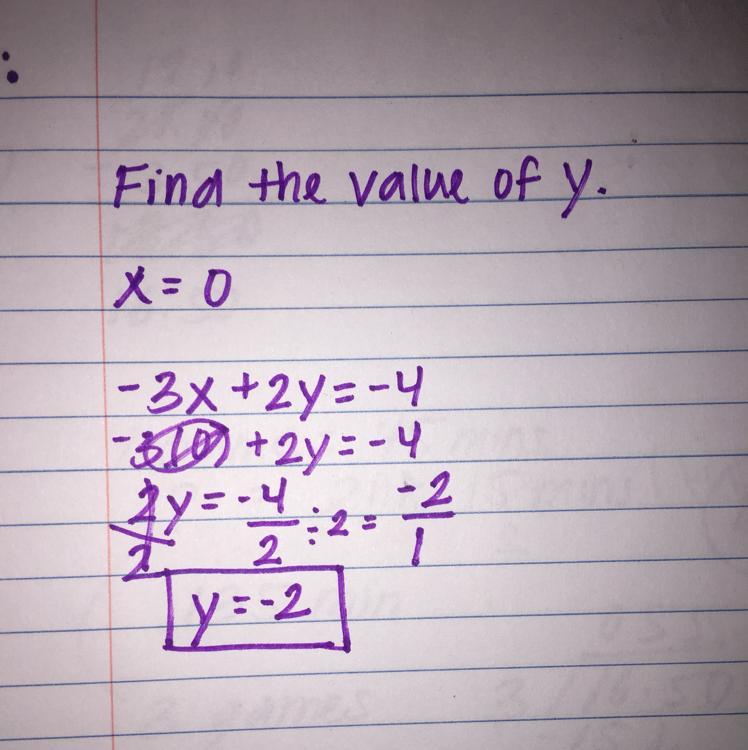 Find the value of y.
x = 0
-3x + 2y = -4
-3(0) + 2y = -4
2y/2 = -4/2 ÷ 2 = -2/1
y = -2